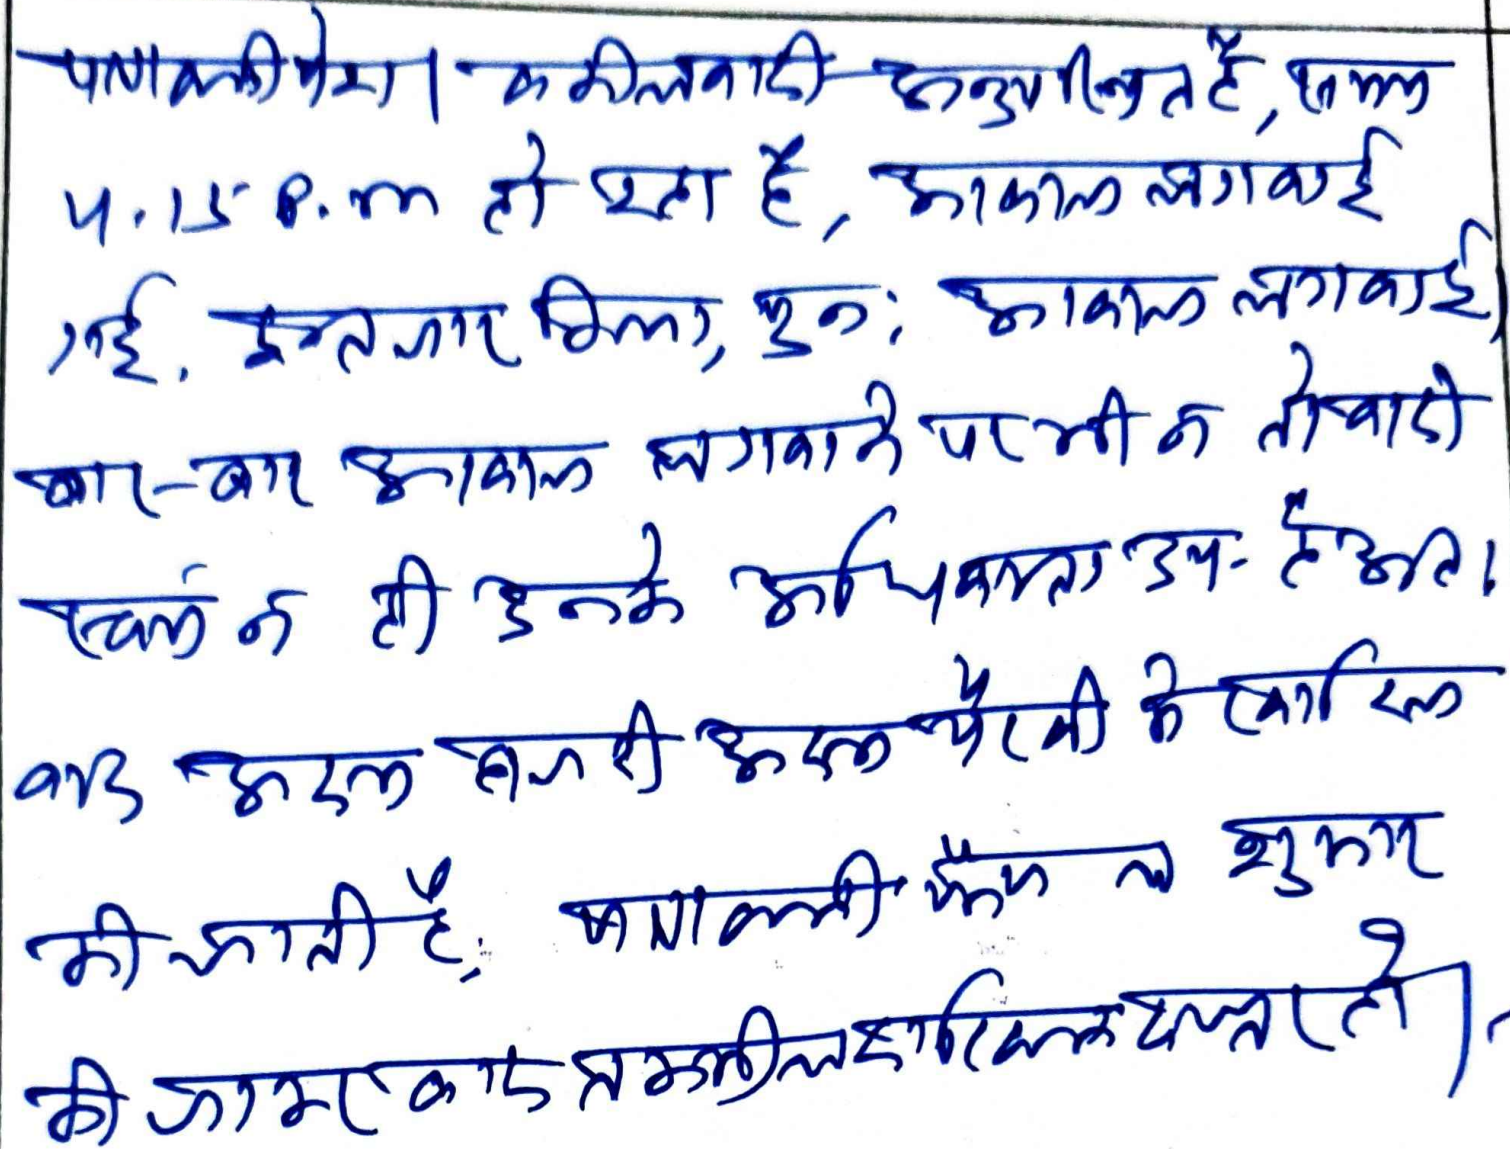 पत्रावली पेश। वकील वादी अनुपस्थित है, समय
4.15 P.m हो रहा है, आवाज लगवाई
गई. इन्तजार किया, पुनः आवाज लगवाई,
बार-बार आवाज लगवाने पर भी न तो वादी
स्वयं न ही उनके अधिवक्ता उप. है अतः
वाद अदम हाजरी अदम पैरवी में खारिज
की जाती है, पत्रावली फैसल शुमार
की जाकर बाद तकमील दाखिल दफ्तर हो।